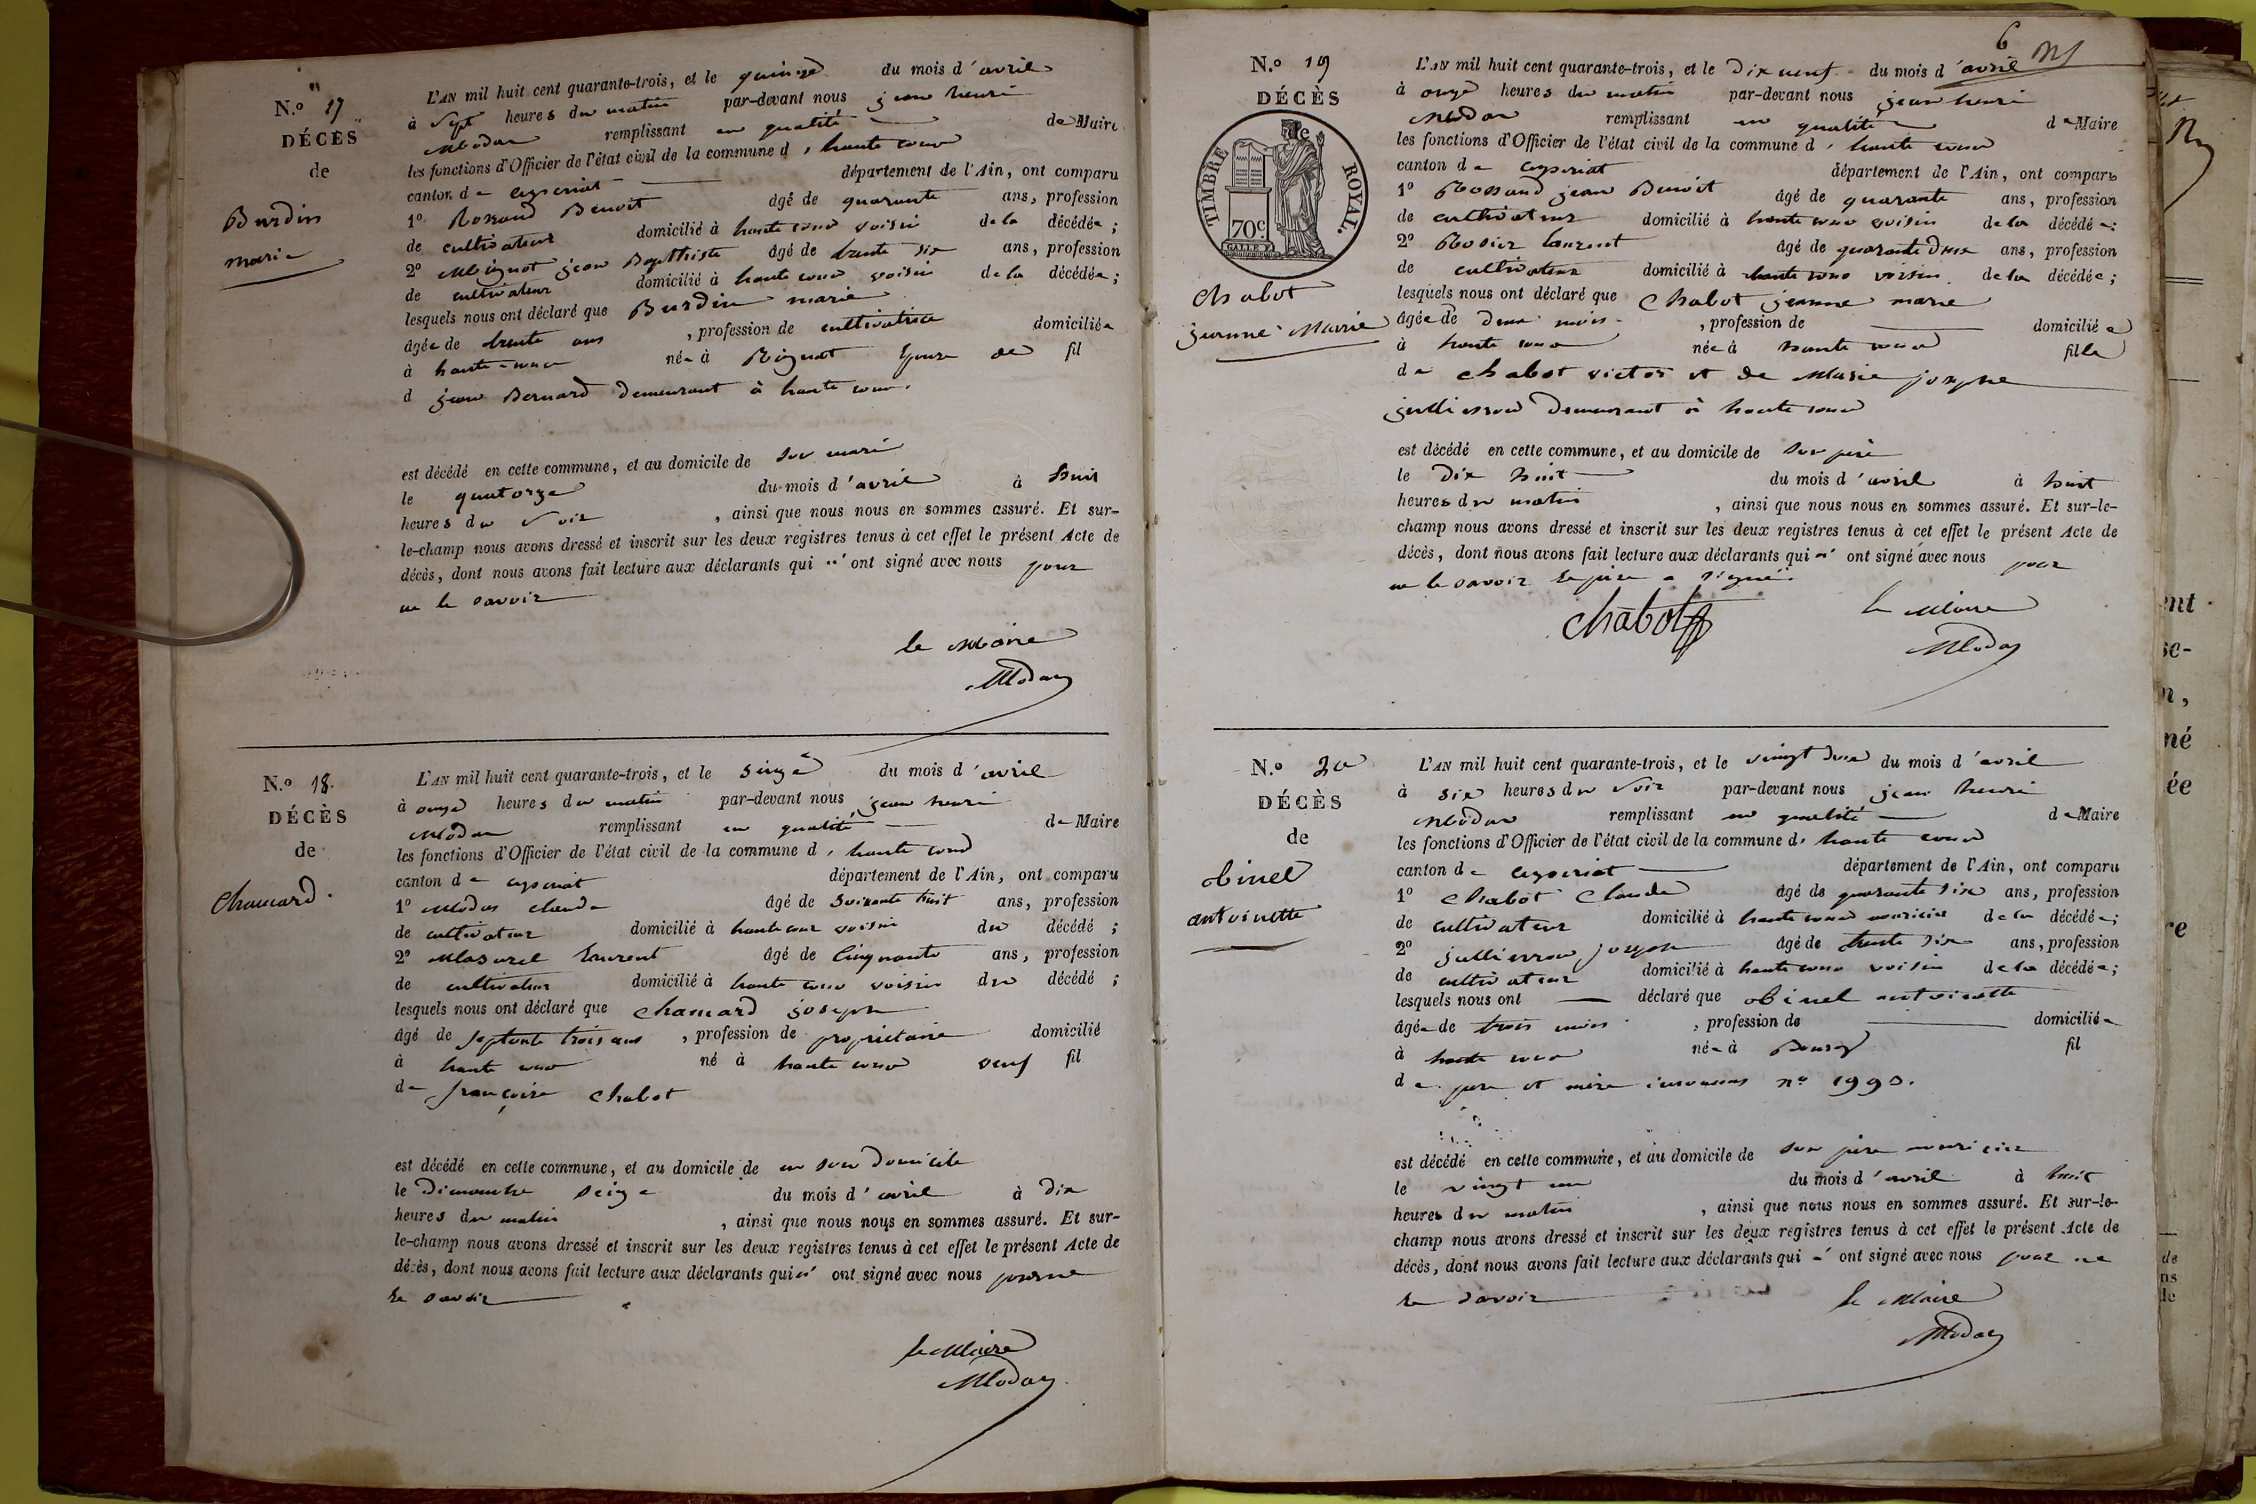 N.o 17
DÉCÈS
de
Burdin
marie
L'AN mil huit cent quarante-trois, et le quinze du mois d'avril
à sept heures du matin par-devant nous jean henri
Modas remplissant en qualité de Maire
les fonctions d'Officier de l'état civil de la commune d'haute cour
canton de ceyzeriat département de l'Ain, ont comparu
1o Rossand Benoit âgé de quarante ans, profession
de cultivateur domicilié à haute cour voisin de la décédée;
2o Mignot jean Bapthiste âgé de trente six ans, profession
de cultivateur domicilié à haute cour voisin de la décédée;
lesquels nous ont déclaré que Burdin marie
âgée de trente ans, profession de cultivatrice domiciliée
à haute-cour née à Rignat épouse de fil
d jean Bernard demeurant à haute cour.
est décédé en cette commune, et au domicile de son mari
le quatorze du mois d'avril à huit
heures du soir, ainsi que nous nous en sommes assuré. Et sur-
le-champ nous avons dressé et inscrit sur les deux registres tenus à cet effet le présent Acte de
décès, dont nous avons fait lecture aux déclarants qui n'ont signé avec nous pour
ne le savoir
le Maire
Modas
N.o 18.
DÉCÈS
de
Chamard.
L'AN mil huit cent quarante-trois, et le seize du mois d'avril
à onze heures du matin par-devant nous jean henri
Modas remplissant en qualité de Maire
les fonctions d'Officier de l'état civil de la commune d'haute cour
canton de ceyzeriat département de l'Ain, ont comparu
1o Modas claude âgé de soixante huit ans, profession
de cultivateur domicilié à haute cour voisin du décédé;
2o Masurel laurent âgé de cinquante ans, profession
de cultivateur domicilié à haute cour voisin du décédé;
lesquels nous ont déclaré que chamard joseph
âgé de septante trois ans, profession de propriétaire domicilié
à haute cour né à haute cour veuf fil
de françoise chabot
est décédé en cette commune, et au domicile de en son domicile
le dimanche seize du mois d'avril à dix
heures du matin, ainsi que nous nous en sommes assuré. Et sur-
le-champ nous avons dressé et inscrit sur les deux registres tenus à cet effet le présent Acte de
décès, dont nous avons fait lecture aux déclarants qui n'ont signé avec nous pour ne
le savoir
le Maire
Modas
6
N.o 19
DÉCÈS
TIMBRE ROYAL.
70c.
chabot
jeanne Marie
L'AN mil huit cent quarante-trois, et le dix neuf du mois d'avril
à onze heures du matin par-devant nous jean henri
Modas remplissant en qualité de Maire
les fonctions d'Officier de l'état civil de la commune d'haute cour
canton de ceyzeriat département de l'Ain, ont comparu
1o Rossand jean Benoit âgé de quarante ans, profession
de cultivateur domicilié à haute cour voisin de la décédée;
2o Rosier laurent âgé de quarante deux ans, profession
de cultivateur domicilié à haute cour voisin de la décédée;
lesquels nous ont déclaré que chabot jeanne marie
âgée de deux mois, profession de domiciliée
à haute cour née à haute cour fille
de chabot victor et de Marie josephe
jullieron demeurant à haute cour
est décédé en cette commune, et au domicile de son père
le dix huit du mois d'avril à huit
heures du matin, ainsi que nous nous en sommes assuré. Et sur-le-
champ nous avons dressé et inscrit sur les deux registres tenus à cet effet le présent Acte de
décès, dont nous avons fait lecture aux déclarants qui n'ont signé avec nous pour
ne le savoir le père a signé.
chabot le Maire
Modas
N.o 20
DÉCÈS
de
obinel
antoinette
L'AN mil huit cent quarante-trois, et le vingt deux du mois d'avril
à six heures du soir par-devant nous jean henri
Modas remplissant en qualité de Maire
les fonctions d'Officier de l'état civil de la commune d'haute cour
canton de ceyzeriat département de l'Ain, ont comparu
1o chabot claude âgé de quarante six ans, profession
de cultivateur domicilié à haute cour nouricier de la décédée;
2o jullieron joseph âgé de trente six ans, profession
de cultivateur domicilié à haute cour voisin de la décédée;
lesquels nous ont déclaré que obinel antoinette
âgée de trois mois, profession de domiciliée
à haute cour née à Bourg fil
de père et mère inconnus no 1990.
est décédé en cette commune, et au domicile de son père nouricier
le vingt un du mois d'avril à huit
heures du matin, ainsi que nous nous en sommes assuré. Et sur-le-
champ nous avons dressé et inscrit sur les deux registres tenus à cet effet le présent Acte de
décès, dont nous avons fait lecture aux déclarants qui n'ont signé avec nous pour ne
le savoir le Maire
Modas